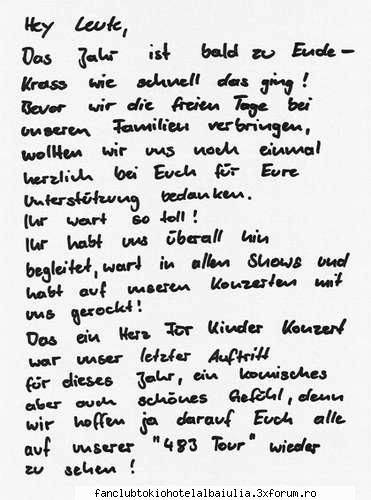 Hey Leute,
Das Jahr ist bald zu Ende -
Krass wie schnell das ging!
Bevor wir die freien Tage bei
unseren Familien verbringen,
wollten wir uns noch einmal
herzlich bei Euch für Eure
Unterstützung bedanken.
Ihr wart so toll!
Ihr habt uns überall hin
begleitet, wart in allen Shows und
habt auf unseren Konzerten mit
uns gerockt!
Das ein Herz Für Kinder Konzert
war unser letzter Auftritt
für dieses Jahr, ein komisches
aber auch schönes Gefühl, denn
wir hoffen ja darauf Euch alle
auf unserer "483 Tour" wieder
zu sehen!
fanclubtokiohotelalbaiulia.3xforum.ro